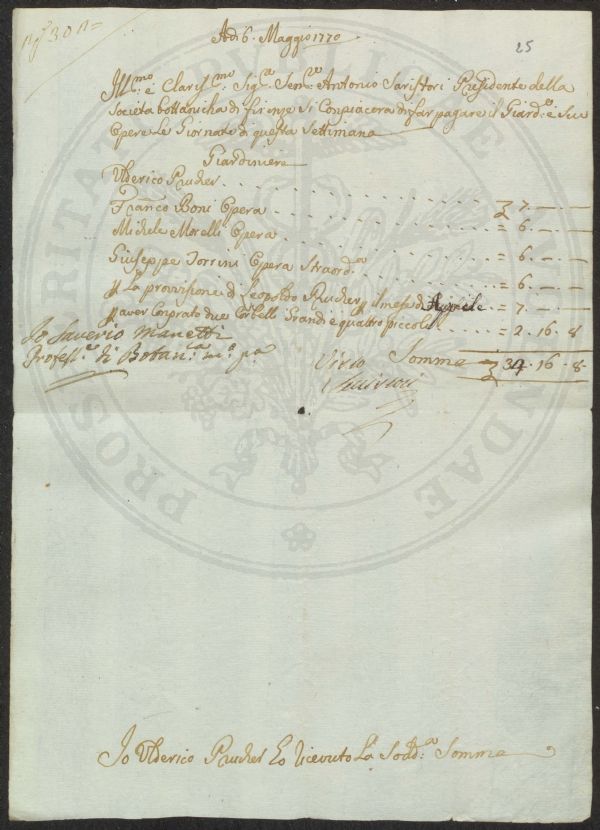 Adi 6. Maggio 1770
25
Ill.mo e Claris.mo Sig.e Sen.re Antonio Saristori Presidente della
Societa bottanicha di firenze Si Conpiacera di far pagare il Giard.e e Sue
Opere Le Giornate di questa Settimana
Giardiniere
Ulderico Prucher
Franco Boni Opera = 7. — —
Michele Morelli Opera = 6. — —
Giuseppe Torrini Opera Straord.a = 6. — —
La provisione di Leopoldo Prucher il mese d Aprile = 7. — —
aver Conprato due Corbelli Grandi e quattro piccoli = 2. 16. 8
Io Saverio Manetti
Profess.e di Botan.ca m.o p.a
Visto Somma = 34. 16. 8.
Io Ulderico Prucher Eo Riceuto La Sodd.a Somma
PROSPERITATI PUBLICAE AUGENDAE